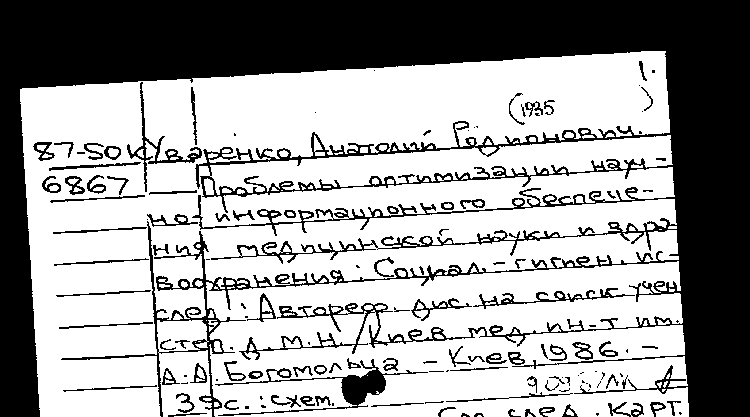 1.
(1935 )
87-50К Уваренко, Анатолий Родионович.
6867 Проблемы оптимизации науч-
но-информационного обеспече-
ния медицинской науки и здра-
воохранения: Социал.-гигиен. ис-
след.: Автореф. дис. на соиск. учен.
степ. д.м.н. / Киев. мед. ин-т им.
А.А. Богомольца. - Киев, 1986. -
39с.: схем.
См. след. карт.